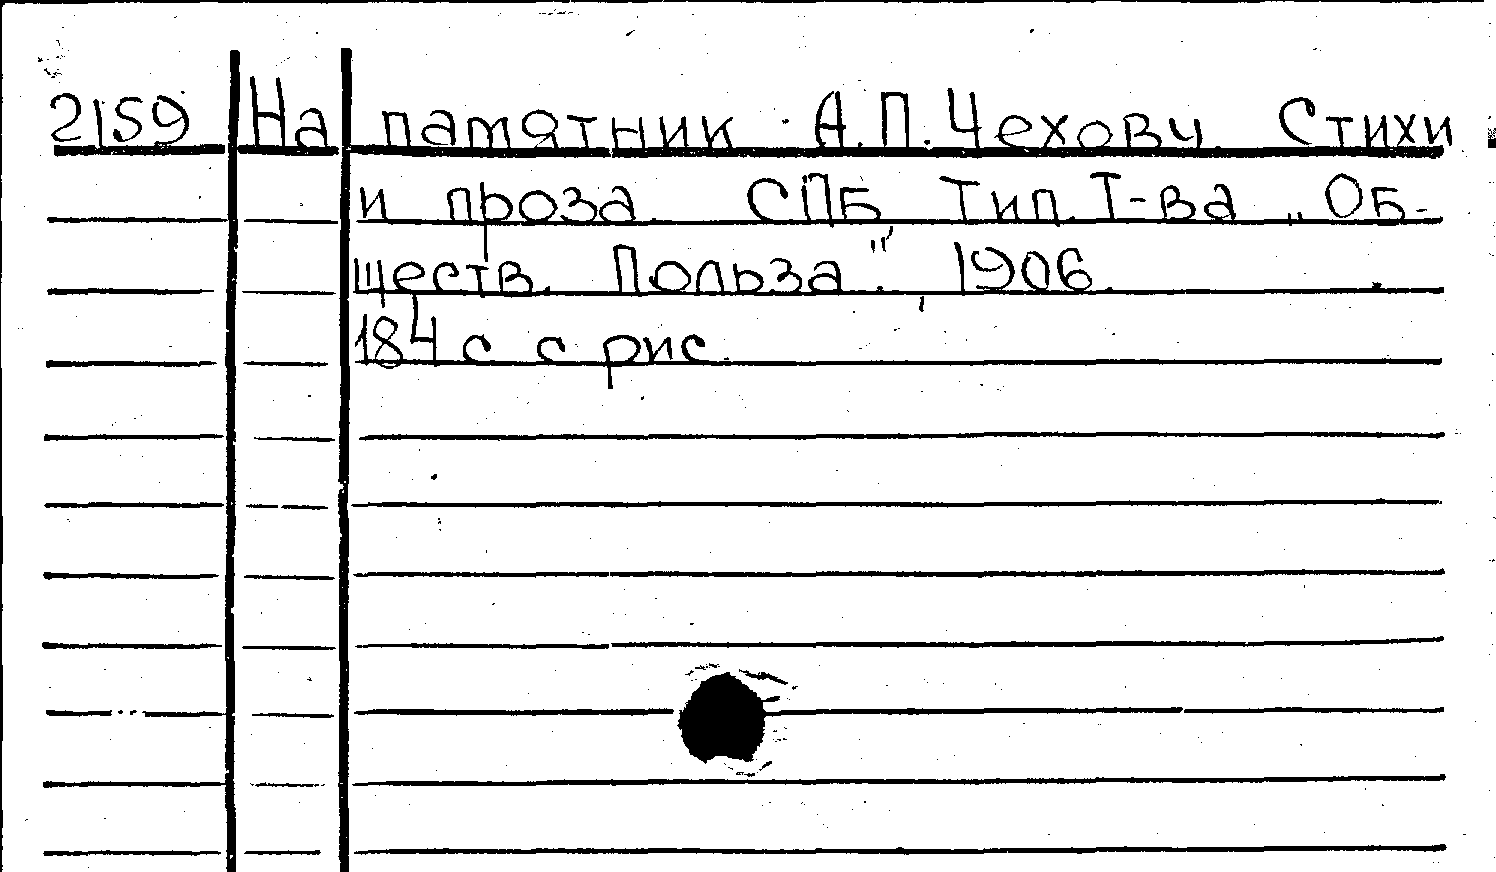 2159 На памятник А.П. Чехову. Стихи
и проза. СПБ Тип. Т-ва „Об-
ществ. Польза", 1906.
184 с с рис.